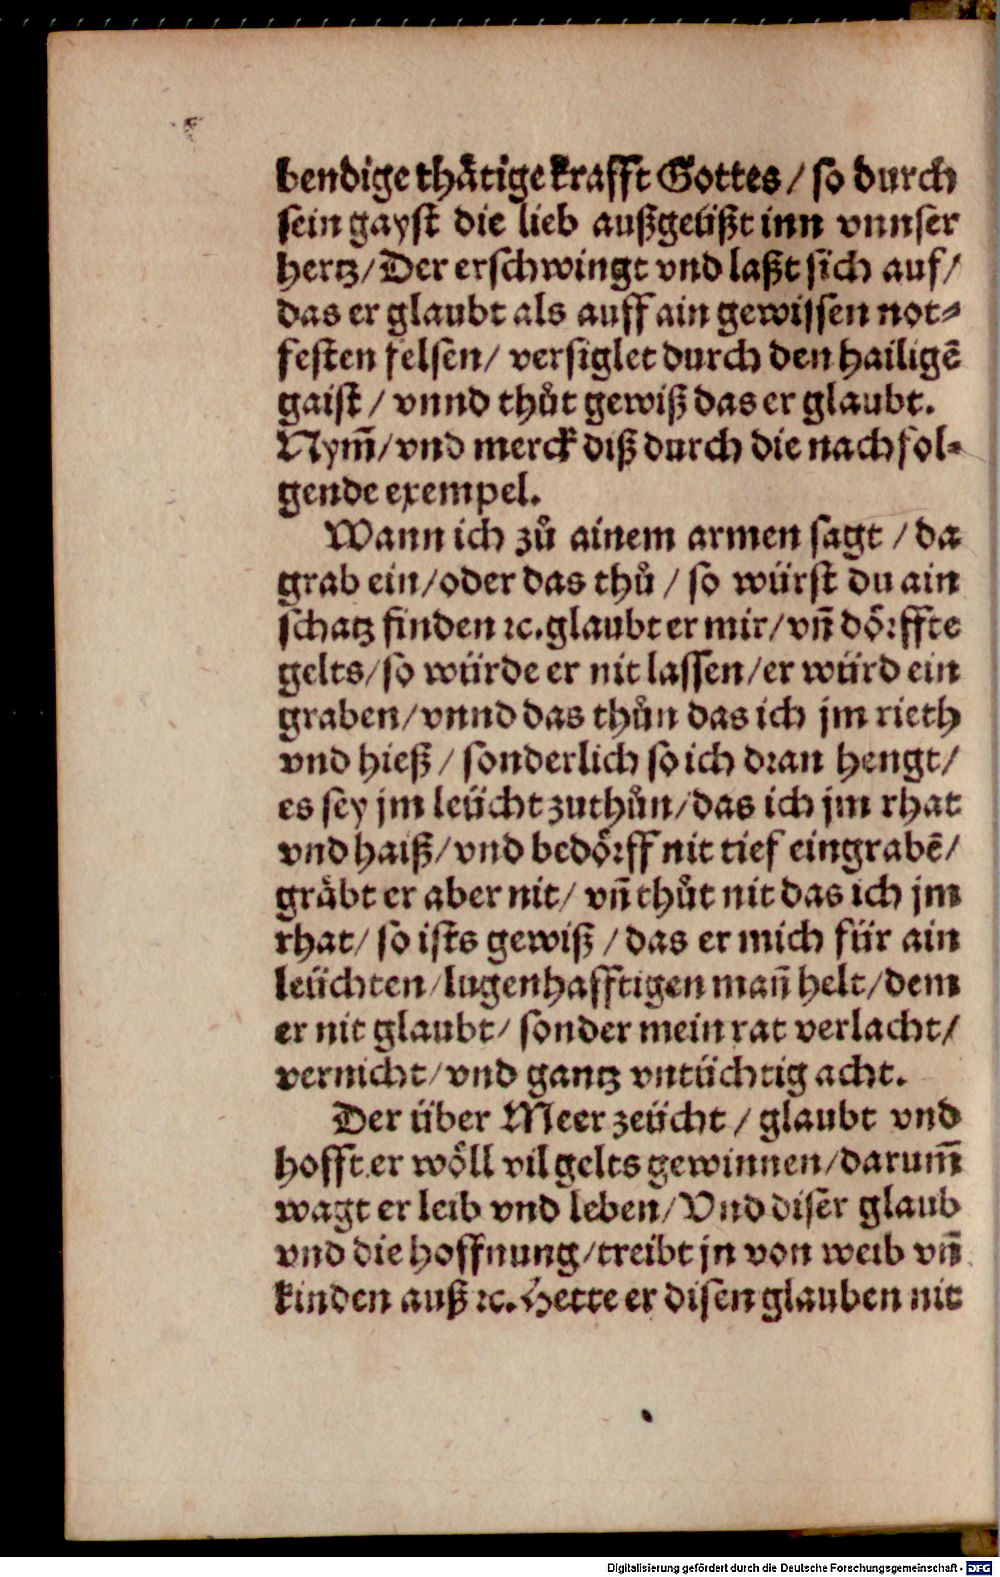 bendige thåtige krafft Gottes / so durch
sein gayst die lieb außgeüßt inn vnnser
hertz/ Der erschwingt vnd laßt sich auf/
das er glaubt als auff ain gewissen not⸗
festen felsen/ versiglet durch den hailigē
gaist / vnnd thůt gewiß das er glaubt.
Nym̄/ vnd merck diß durch die nachfol⸗
gende exempel.
Wann ich zů ainem armen sagt / da
grab ein/ oder das thů / so würst du ain
schatz finden ꝛc. glaubt er mir/ vn̄ dörffte
gelts/ so würde er nit lassen/ er würd ein
graben/ vnnd das thůn das ich jm rieth
vnd hieß / sonderlich so ich dran hengt/
es sey jm leücht zuthůn/ das ich jm rhat
vnd haiß/ vnd bedörff nit tief eingrabē/
gräbt er aber nit/ vn̄ thůt nit das ich jm
rhat/ so ists gewiß / das er mich für ain
leüchten/ lugenhafftigen man̄ helt/ dem
er nit glaubt/ sonder mein rat verlacht/
vernicht/ vnd gantz vntüchtig acht.
Der über Meer zeücht / glaubt vnd
hofft er wöll vil gelts gewinnen/ darum̄
wagt er leib vnd leben/ Vnd diser glaub
vnd die hoffnung/ treibt jn von weib vn̄
kinden auß ꝛc. Hette er disen glauben nit
Digitalisierung gefördert durch die Deutsche Forschungsgemeinschaft - DFG